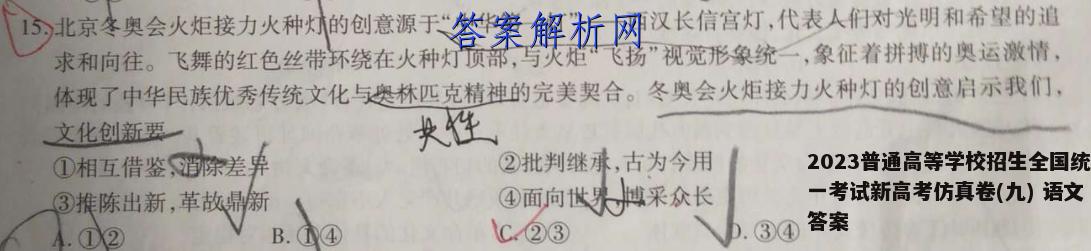 15.北京冬奥会火炬接力火种灯的创意源于“ 华 西汉长信宫灯,代表人们对光明和希望的追
答案解析网
求和向往。飞舞的红色丝带环绕在火种灯顶部,与火炬“飞扬”视觉形象统一,象征着拼搏的奥运激情,
体现了中华民族优秀传统文化与奥林匹克精神的完美契合。冬奥会火炬接力火种灯的创意启示我们,
文化创新要
共性
①相互借鉴,消除差异 ②批判继承,古为今用
③推陈出新,革故鼎新 ④面向世界,博采众长
A.①② B.①④ C.②③ D.③④
2023普通高等学校招生全国统
一考试新高考仿真卷(九) 语文
答案